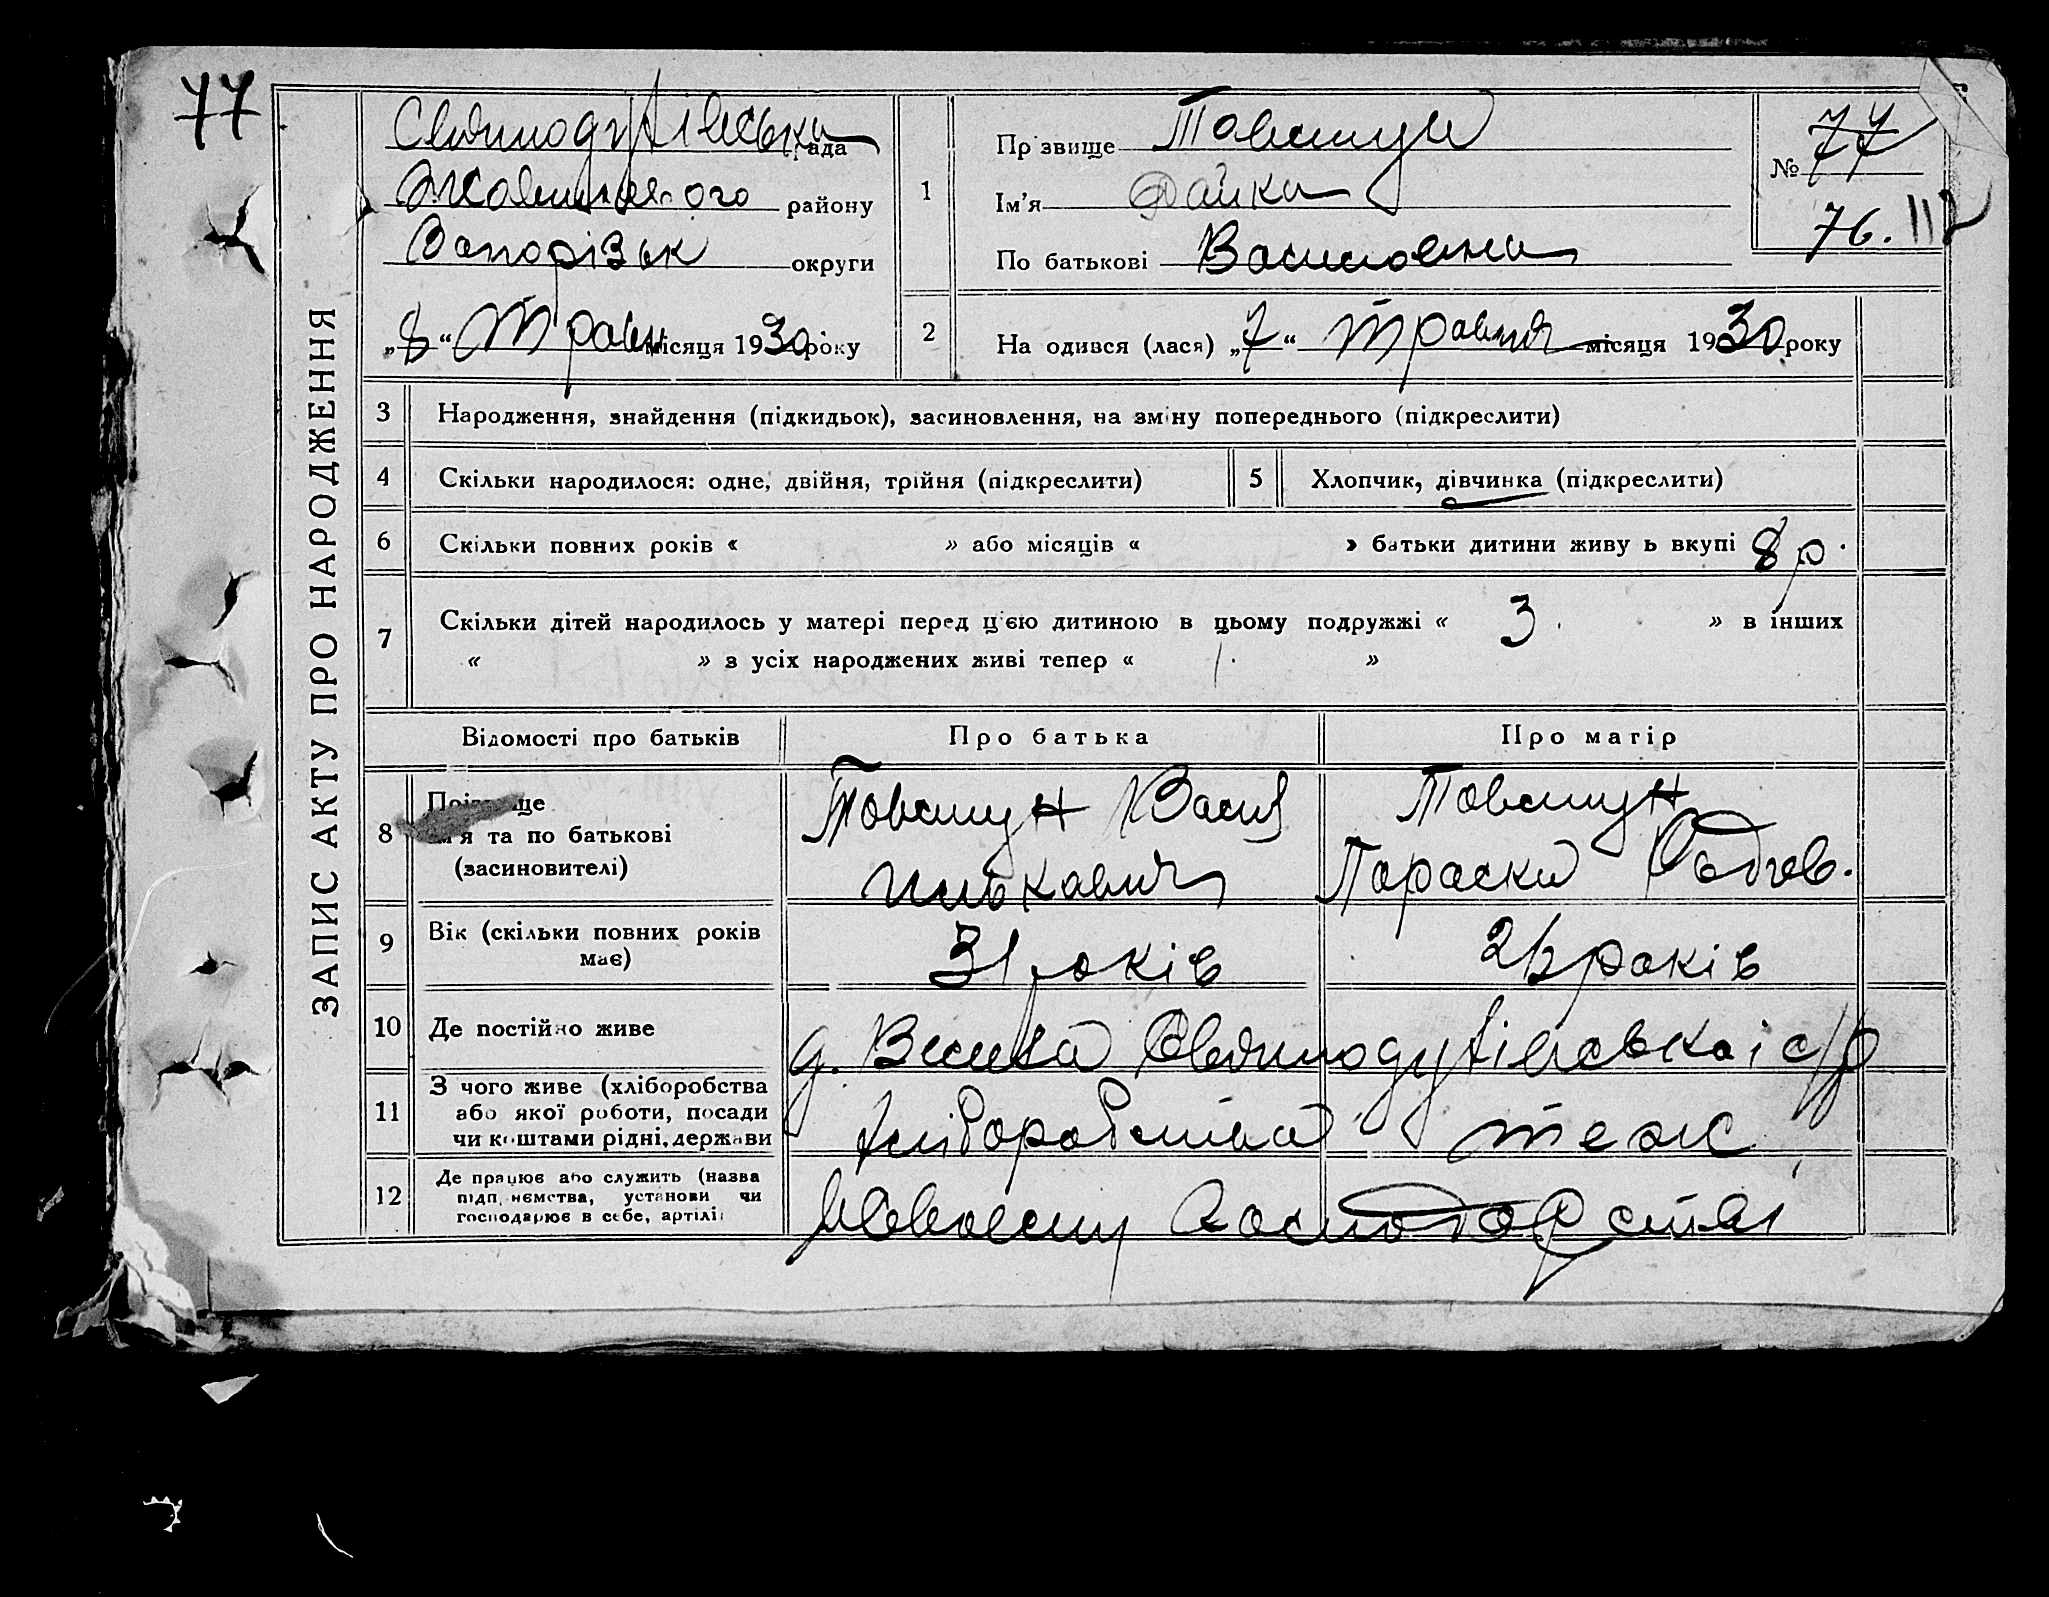 77
Святодухівська рада
Жовтневого району
Запорізьк округи
„8“ Травн місяця 1930 року
ЗАПИС АКТУ ПРО НАРОДЖЕННЯ
1
Пр звище Товстун
Ім'я
По батькові Василовна
№ 77
76. 112
2
На одився (лася) „7“ Травня місяця 1930 року
3 Народження, знайдення (підкидьок), засиновлення, на зміну попереднього (підкреслити)
4 Скільки народилося: одне, двійня, трійня (підкреслити)
5 Хлопчик, дівчинка (підкреслити)
6 Скільки повних років « » або місяців « » батьки дитини живу ь вкупі 8 р.
7 Скільки дітей народилось у матері перед ц'єю дитиною в цьому подружжі « 3 » в інших
« » з усіх народжених живі тепер « »
Відомості про батьків Про батька Про матір
8 Прізвище
ім'я та по батькові
(засиновителі)
Товстун Васил
Товстун
Параска
9 Вік (скільки повних років
має)
31 років
26 років
10 Де постійно живе
Святодухівської с/р
11 З чого живе (хліборобства
або якої роботи, посади
чи коштами рідні, держави
Хліборобства
теж
12 Де працює або служить (назва
підп иємства, установи чи
господарює в себе, артілі
господарстві